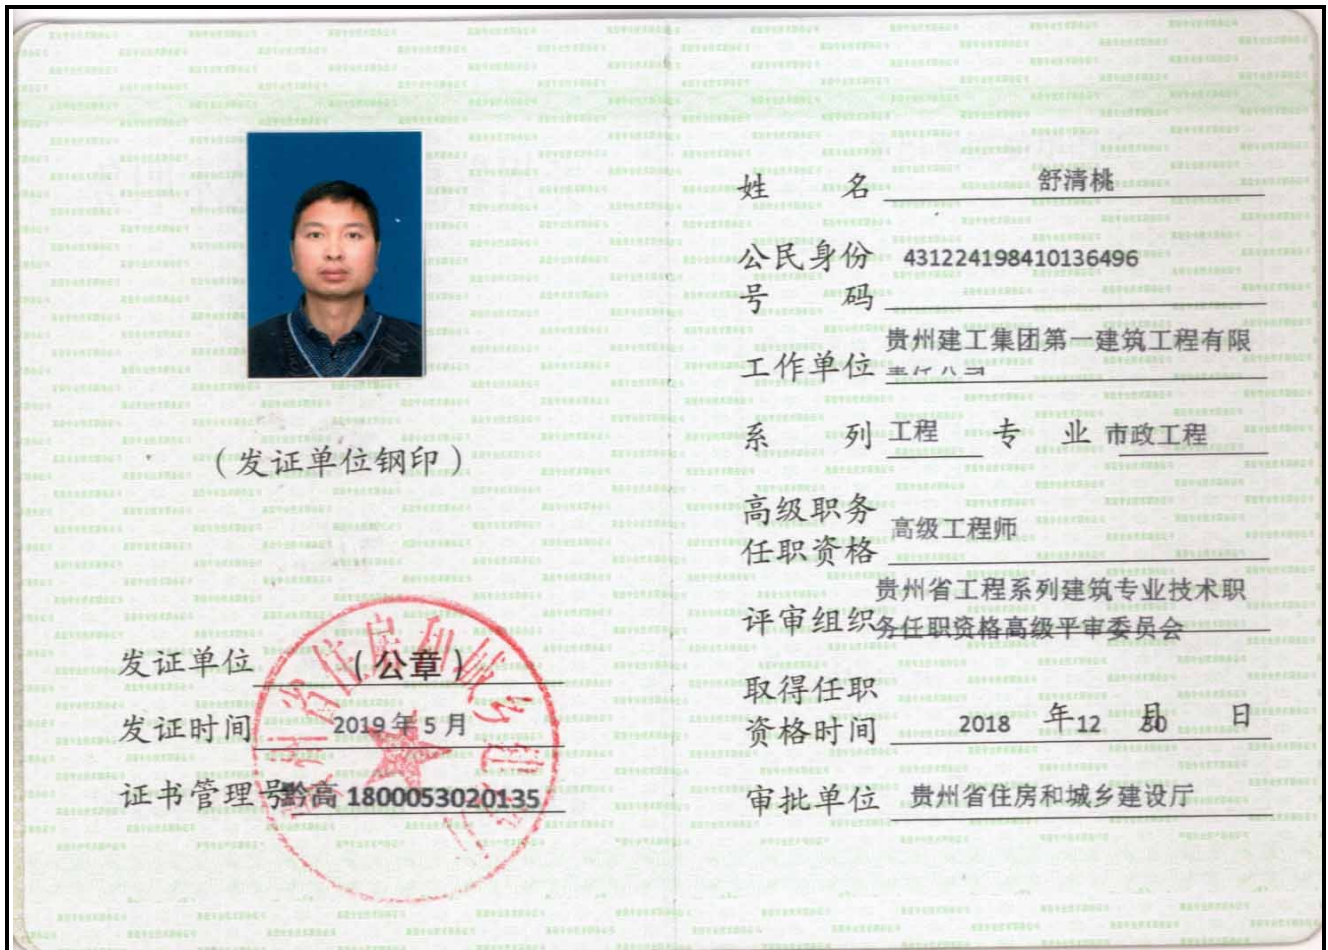 (发证单位钢印)
发证单位 (公章)
发证时间 2019 年 5 月
证书管理号黔高 1800053020135
姓 名 舒清桃
公民身份 431224198410136496
号 码
贵州建工集团第一建筑工程有限
工作单位 责任公司
系 列 工程 专 业 市政工程
高级职务
任职资格 高级工程师
贵州省工程系列建筑专业技术职
评审组织 务任职资格高级平审委员会
取得任职
资格时间 2018 年 12 月 30 日
审批单位 贵州省住房和城乡建设厅